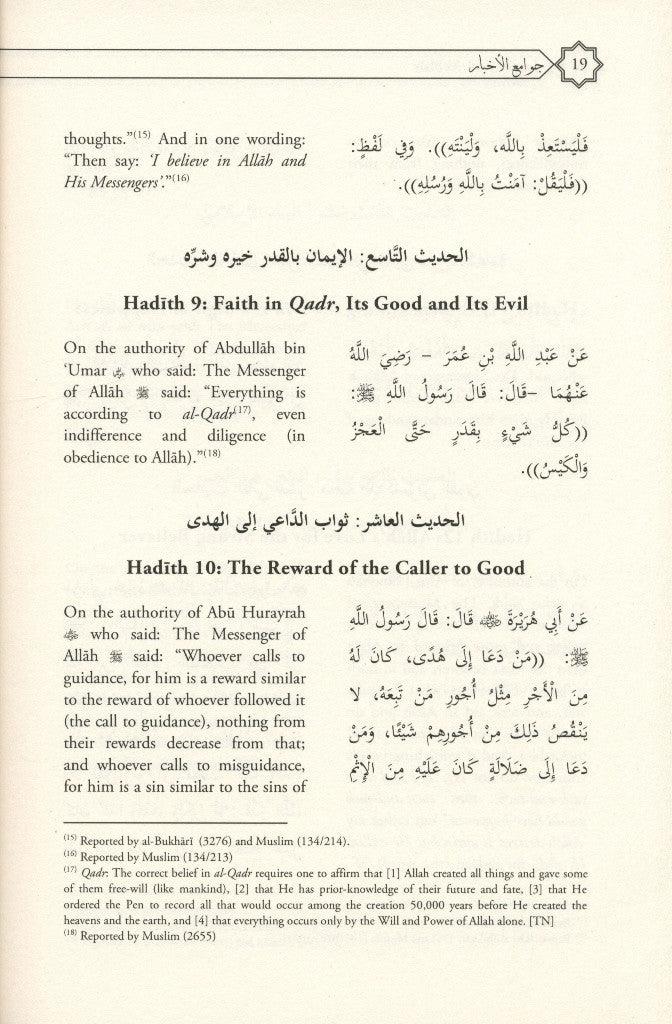 جوامع الأخبار 19
thoughts.”(15) And in one wording:
“Then say: ‘I believe in Allāh and
His Messengers’.”(16)
فَلْيَسْتَعِذْ بِاللَّه، وَلْيَنْتَهِ)). وَفِي لَفْظٍ:
((فَلْيَقُلْ: آمَنْتُ بِاللَّهِ وَرُسُلِهِ)).
الحديث التَّاسع: الإيمان بالقدر خيره وشرِّه
Hadīth 9: Faith in Qadr, Its Good and Its Evil
On the authority of Abdullāh bin
‘Umar ؓ who said: The Messenger
of Allāh ﷺ said: “Everything is
according to al-Qadr(17), even
indifference and diligence (in
obedience to Allāh).”(18)
عَنْ عَبْدِ اللَّهِ بْنِ عُمَرَ – رَضِيَ اللَّهُ
عَنْهُمَا –قَالَ: قَالَ رَسُولُ اللَّهِ ﷺ:
((كُلُّ شَيْءٍ بِقَدَرٍ حَتَّى الْعَجْزُ
وَالْكَيْسُ)).
الحديث العاشر: ثواب الدَّاعي إلى الهدى
Hadīth 10: The Reward of the Caller to Good
On the authority of Abū Hurayrah
ؓ who said: The Messenger of
Allāh ﷺ said: “Whoever calls to
guidance, for him is a reward similar
to the reward of whoever followed it
(the call to guidance), nothing from
their rewards decrease from that;
and whoever calls to misguidance,
for him is a sin similar to the sins of
عَنْ أَبِي هُرَيْرَةَ ؓ قَالَ: قَالَ رَسُولُ اللَّهِ
ﷺ: ((مَنْ دَعَا إِلَى هُدًى، كَانَ لَهُ
مِنَ الْأَجْرِ مِثْلُ أُجُورِ مَنْ تَبِعَهُ، لا
يَنْقُصُ ذَلِكَ مِنْ أُجُورِهِمْ شَيْئًا، وَمَنْ
دَعَا إِلَى ضَلَالَةٍ كَانَ عَلَيْهِ مِنَ الْإِثْمِ
(15) Reported by al-Bukhārī (3276) and Muslim (134/214).
(16) Reported by Muslim (134/213)
(17) Qadr: The correct belief in al-Qadr requires one to affirm that [1] Allah created all things and gave some
of them free-will (like mankind), [2] that He has prior-knowledge of their future and fate, [3] that He
ordered the Pen to record all that would occur among the creation 50,000 years before He created the
heavens and the earth, and [4] that everything occurs only by the Will and Power of Allah alone. [TN]
(18) Reported by Muslim (2655)